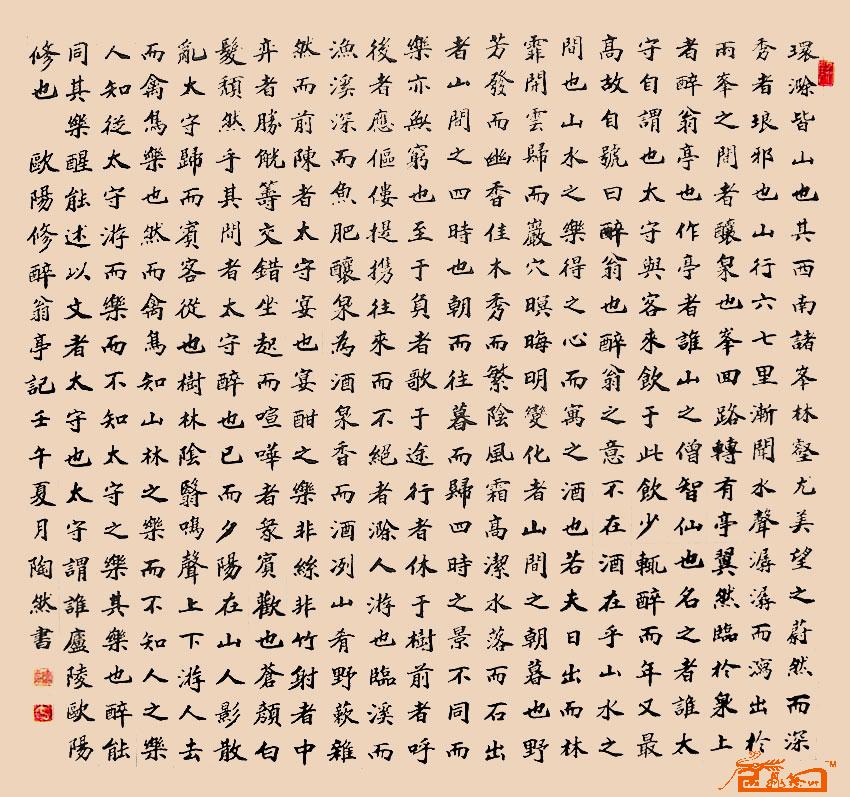 環滁皆山也其西南諸峯林壑尤美望之蔚然而深
秀者琅邪也山行六七里漸聞水聲潺潺而瀉出於
兩峯之間者釀泉也峯回路轉有亭翼然臨於泉上
者醉翁亭也作亭者誰山之僧智仙也名之者誰太
守自謂也太守與客來飲于此飲少輒醉而年又最
高故自號曰醉翁也醉翁之意不在酒在乎山水之
間也山水之樂得之心而寓之酒也若夫日出而林
霏開雲歸而巖穴暝晦明變化者山間之朝暮也野
芳發而幽香佳木秀而繁陰風霜高潔水落而石出
者山間之四時也朝而往暮而歸四時之景不同而
樂亦無窮也至于負者歌于途行者休于樹前者呼
後者應傴僂提攜往來而不絕者滁人游也臨溪而
漁溪深而魚肥釀泉為酒泉香而酒冽山肴野蔌雜
然而前陳者太守宴也宴酣之樂非絲非竹射者中
弈者勝觥籌交錯坐起而喧嘩者衆賓歡也蒼顏白
髮頹然乎其間者太守醉也已而夕陽在山人影散
亂太守歸而賓客從也樹林陰翳鳴聲上下游人去
而禽鳥樂也然而禽鳥知山林之樂而不知人之樂
人知從太守游而樂而不知太守之樂其樂也醉能
同其樂醒能述以文者太守也太守謂誰廬陵歐陽
修也 歐陽修醉翁亭記壬午夏月陶然書